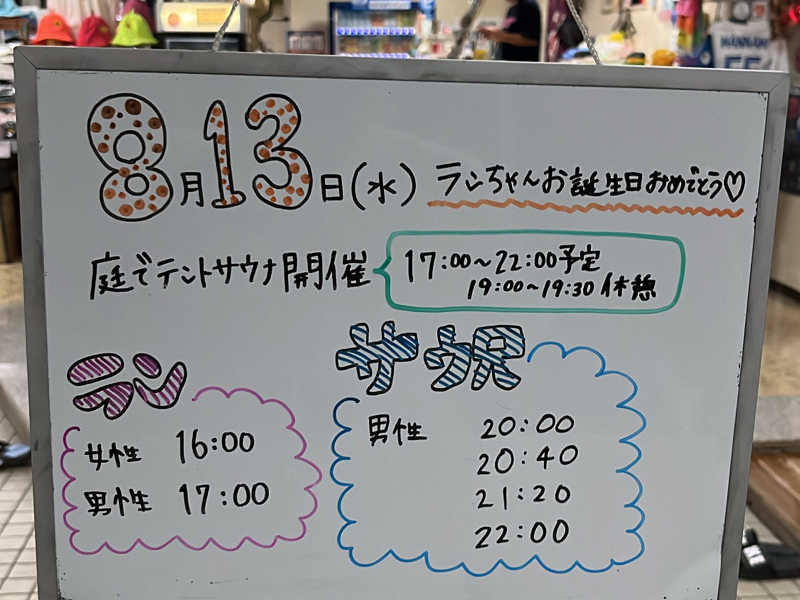 8月13日(水) ランちゃんお誕生日おめでとう♡
庭でテントサウナ開催
17:00〜22:00予定
19:00〜19:30 休憩
ラン
女性 16:00
男性 17:00
男性 20:00
20:40
21:20
22:00